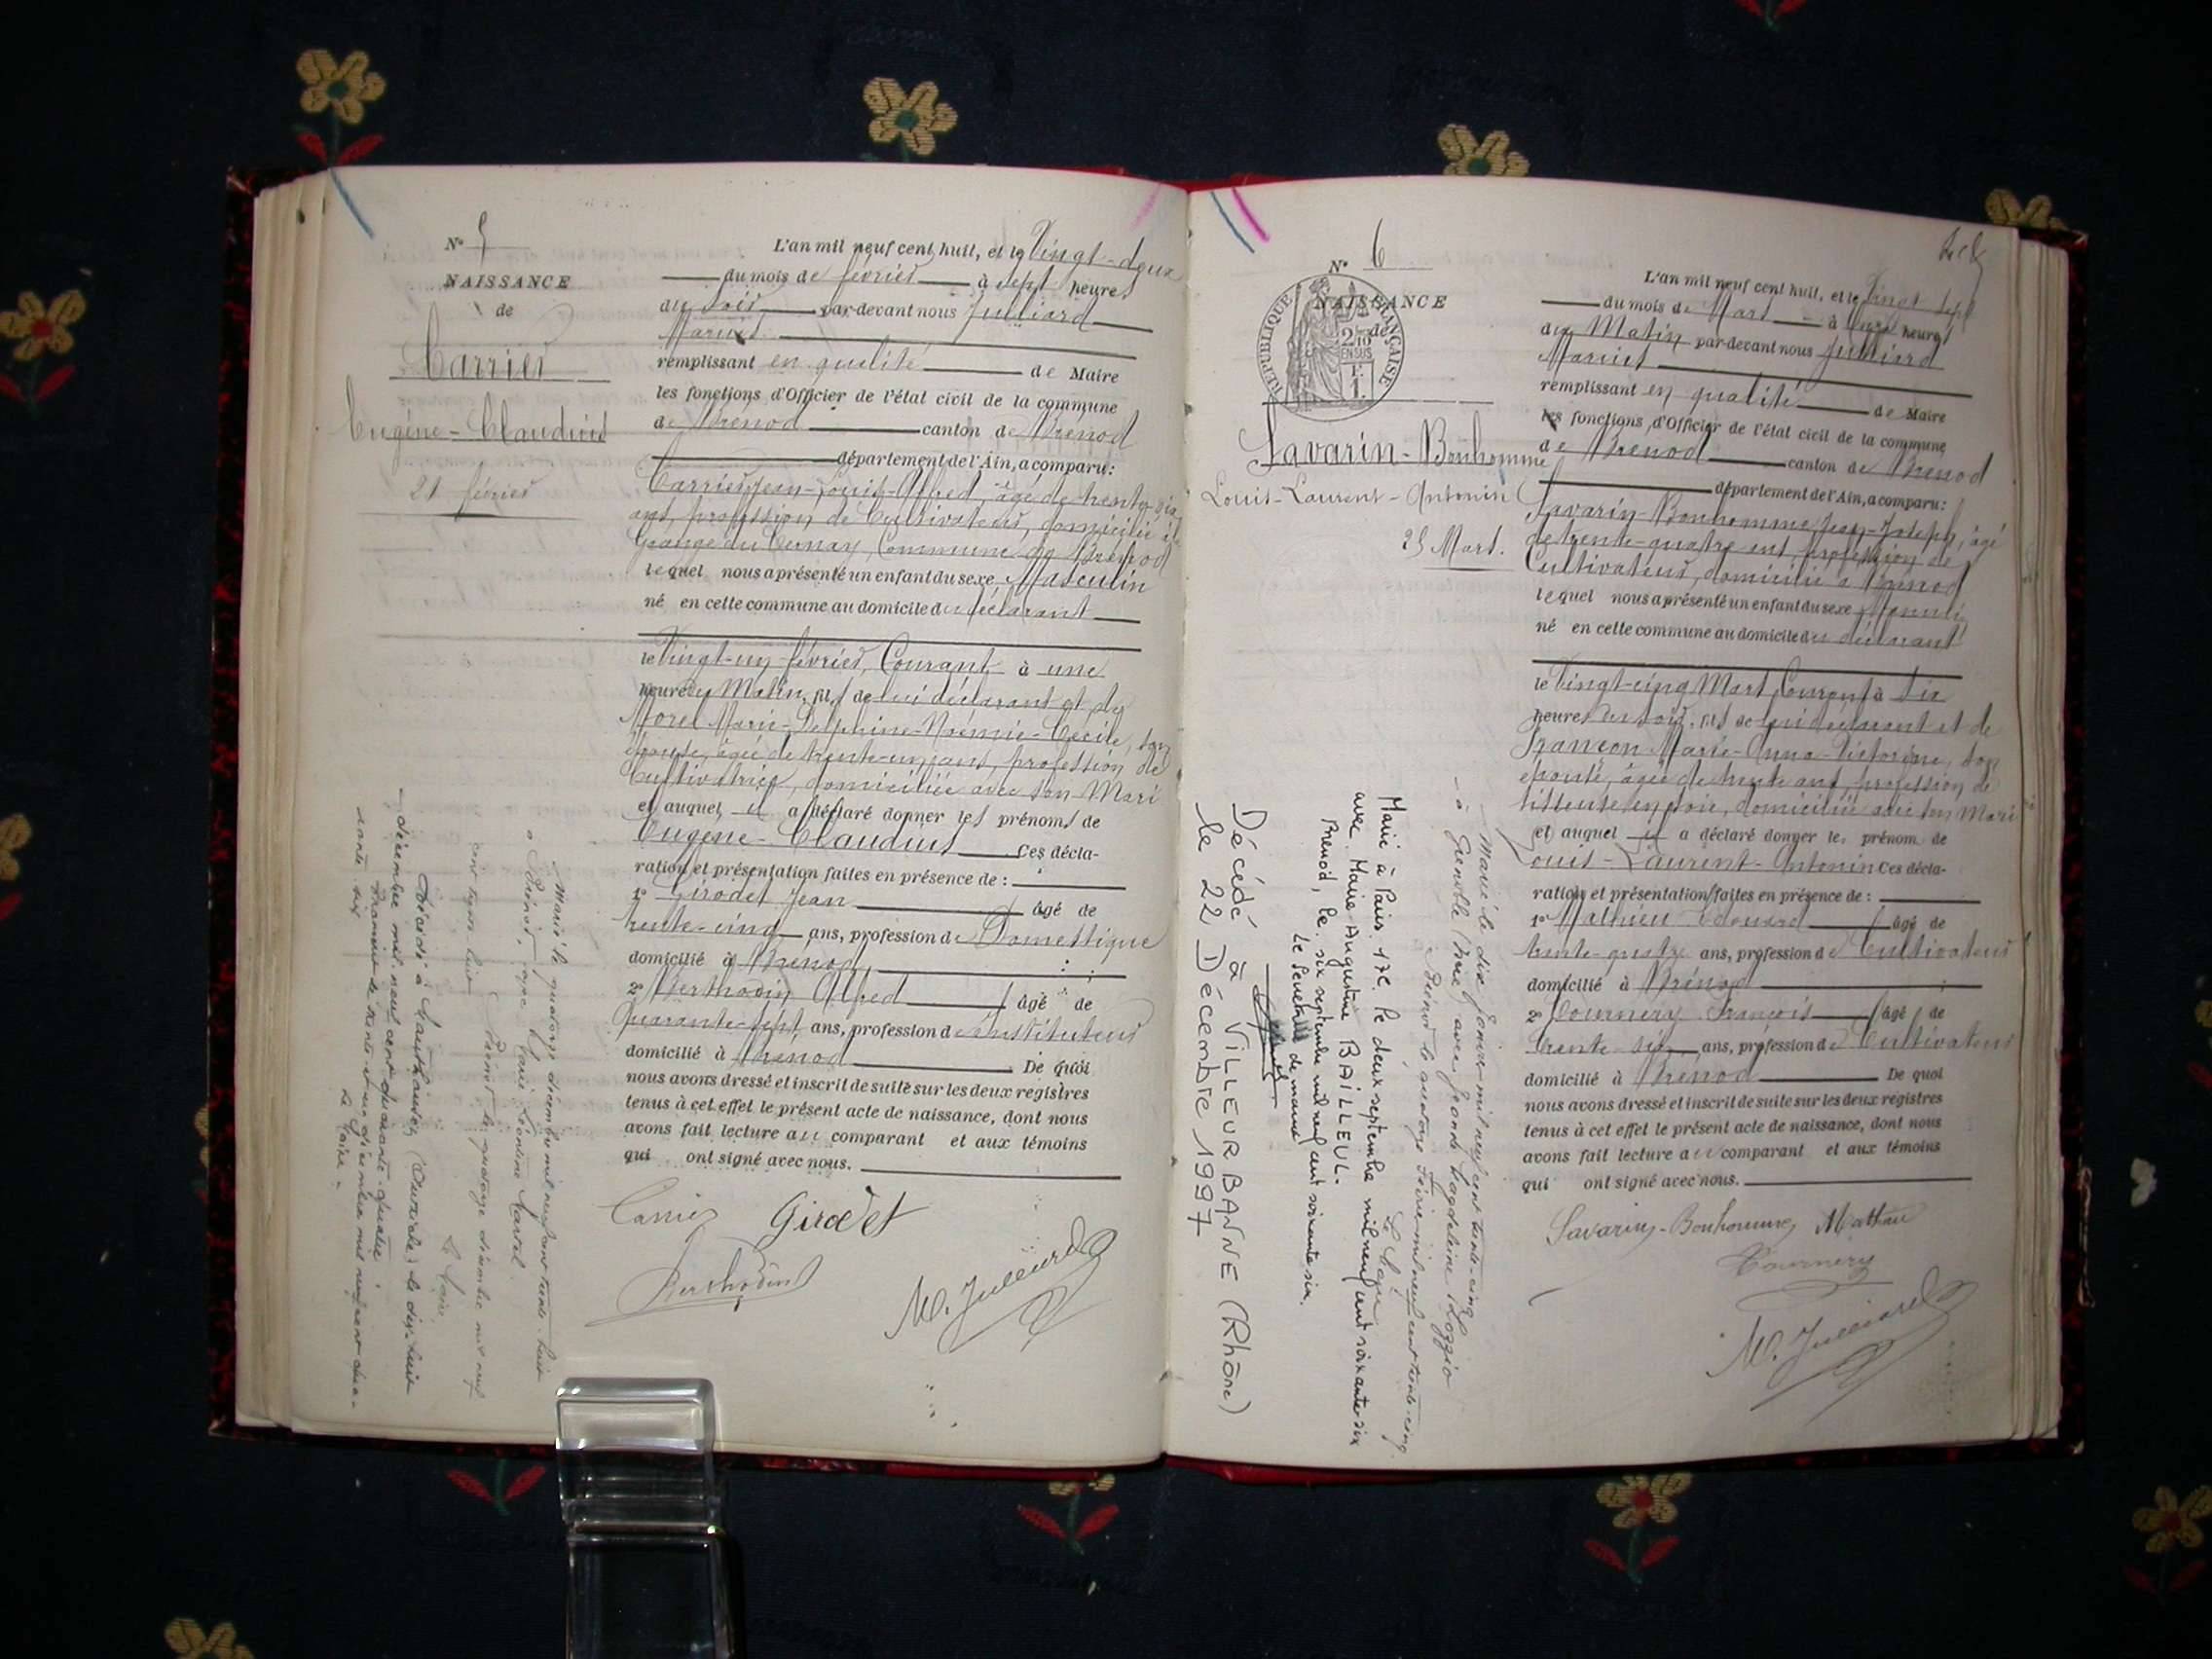 N° 5
NAISSANCE
de
Carrier
Eugène-Claudius
21 février
L'an mil neuf cent huit, et le Vingt-deux
du mois de février à sept heures
du soir par-devant nous Julliard
Marius
remplissant en qualité de Maire
les fonctions d'Officier de l'état civil de la commune
de Brénod canton de Brénod
département de l'Ain, a comparu:
Carrier Jean-Louis-Alfred, âgé de trente-six
ans, profession de Cultivateur, domicilié à
Grange du Cernay, Commune de Brénod
lequel nous a présenté un enfant du sexe Masculin
né en cette commune au domicile du déclarant
le Vingt-un février Courant à une
heure du Matin, fils de lui déclarant et de
Morel Marie-Delphine-Noémie-Cécile, son
épouse, âgée de trente-un ans, profession de
Cultivatrice, domiciliée avec son Mari
et auquel il a déclaré donner les prénoms de
Eugène-Claudius Ces décla-
ration et présentation faites en présence de :
1° Girodet Jean âgé de
trente-cinq ans, profession de Domestique
domicilié à Brénod
2° Berthodin Alfred âgé de
Quarante-sept ans, profession de instituteur
domicilié à Brénod De quoi
nous avons dressé et inscrit de suite sur les deux registres
tenus à cet effet le présent acte de naissance, dont nous
avons fait lecture au comparant et aux témoins
qui ont signé avec nous.
Carrier Girodet
Berthodin M. Julliard
Marié le quatorze décembre mil neuf cent trente-huit
à Brénod, avec Léontine
Brénod le quatorze décembre mil neuf
cent trente huit
Le Maire
Décédé à Mauthausen (Autriche) le dix-huit
décembre mil neuf cent quarante-quatre.
Le Maire
N° 6
RÉPUBLIQUE FRANÇAISE
NAISSANCE
de
Savarin-Bonhomme
Louis-Laurent-Antonin
25 Mars.
L'an mil neuf cent huit, et le Vingt sept
du mois de Mars à onze heures
du Matin par-devant nous Julliard
Marius
remplissant en qualité de Maire
les fonctions d'Officier de l'état civil de la commune
de Brénod canton de Brénod
département de l'Ain, a comparu:
Savarin-Bonhomme Jean-Joseph, âgé
de trente-quatre ans, profession de
Cultivateur, domicilié à Brénod
lequel nous a présenté un enfant du sexe Masculin
né en cette commune au domicile du déclarant
le Vingt-cinq Mars Courant à six
heures du soir, fils de lui déclarant et de
Françon Marie-Anna-Victorine, son
épouse, âgée de trente ans, profession de
tisseuse en soie, domiciliée avec son Mari
et auquel il a déclaré donner les prénom de
Louis-Laurent-Antonin Ces décla-
ration et présentation faites en présence de :
1° Mathieu Edouard âgé de
trente-quatre ans, profession de Cultivateur
domicilié à Brénod
2° Tournery François âgé de
trente-six ans, profession de Cultivateur
domicilié à Brénod De quoi
nous avons dressé et inscrit de suite sur les deux registres
tenus à cet effet le présent acte de naissance, dont nous
avons fait lecture au comparant et aux témoins
qui ont signé avec nous.
Savarin-Bonhomme Mathieu
Tournery
M. Julliard
Marié le dix février mil neuf cent trente-cinq
à Grenoble (Isère) avec Magdeleine
à Brénod le quatorze février mil neuf cent trente-cinq
Le Maire
Marié à Paris 17e. le deux septembre mil neuf cent soixante-six
avec Marie-Augustine BAILLEUL-
Brenod, le six septembre mil neuf cent soixante six.
Le Secrétaire de mairie
Décédé à VILLEURBANNE (Rhône)
le 22 Décembre 1997